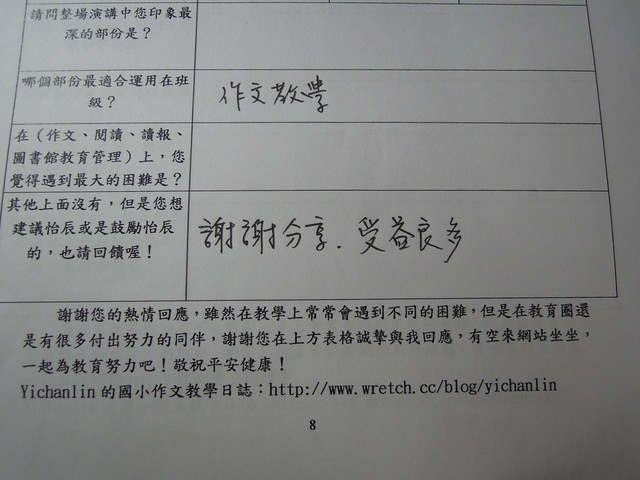 請問整場演講中您印象最
深的部份是？
哪個部份最適合運用在班
級？
作文教學
在（作文、閱讀、讀報、
圖書館教育管理）上，您
覺得遇到最大的困難是？
其他上面沒有，但是您想
建議怡辰或是鼓勵怡辰
的，也請回饋喔！
謝謝分享．受益良多
謝謝您的熱情回應，雖然在教學上常常會遇到不同的困難，但是在教育圈還
是有很多付出努力的同伴，謝謝您在上方表格誠摯與我回應，有空來網站坐坐，
一起為教育努力吧！敬祝平安健康！
Yichanlin 的國小作文教學日誌：http://www.wretch.cc/blog/yichanlin
8